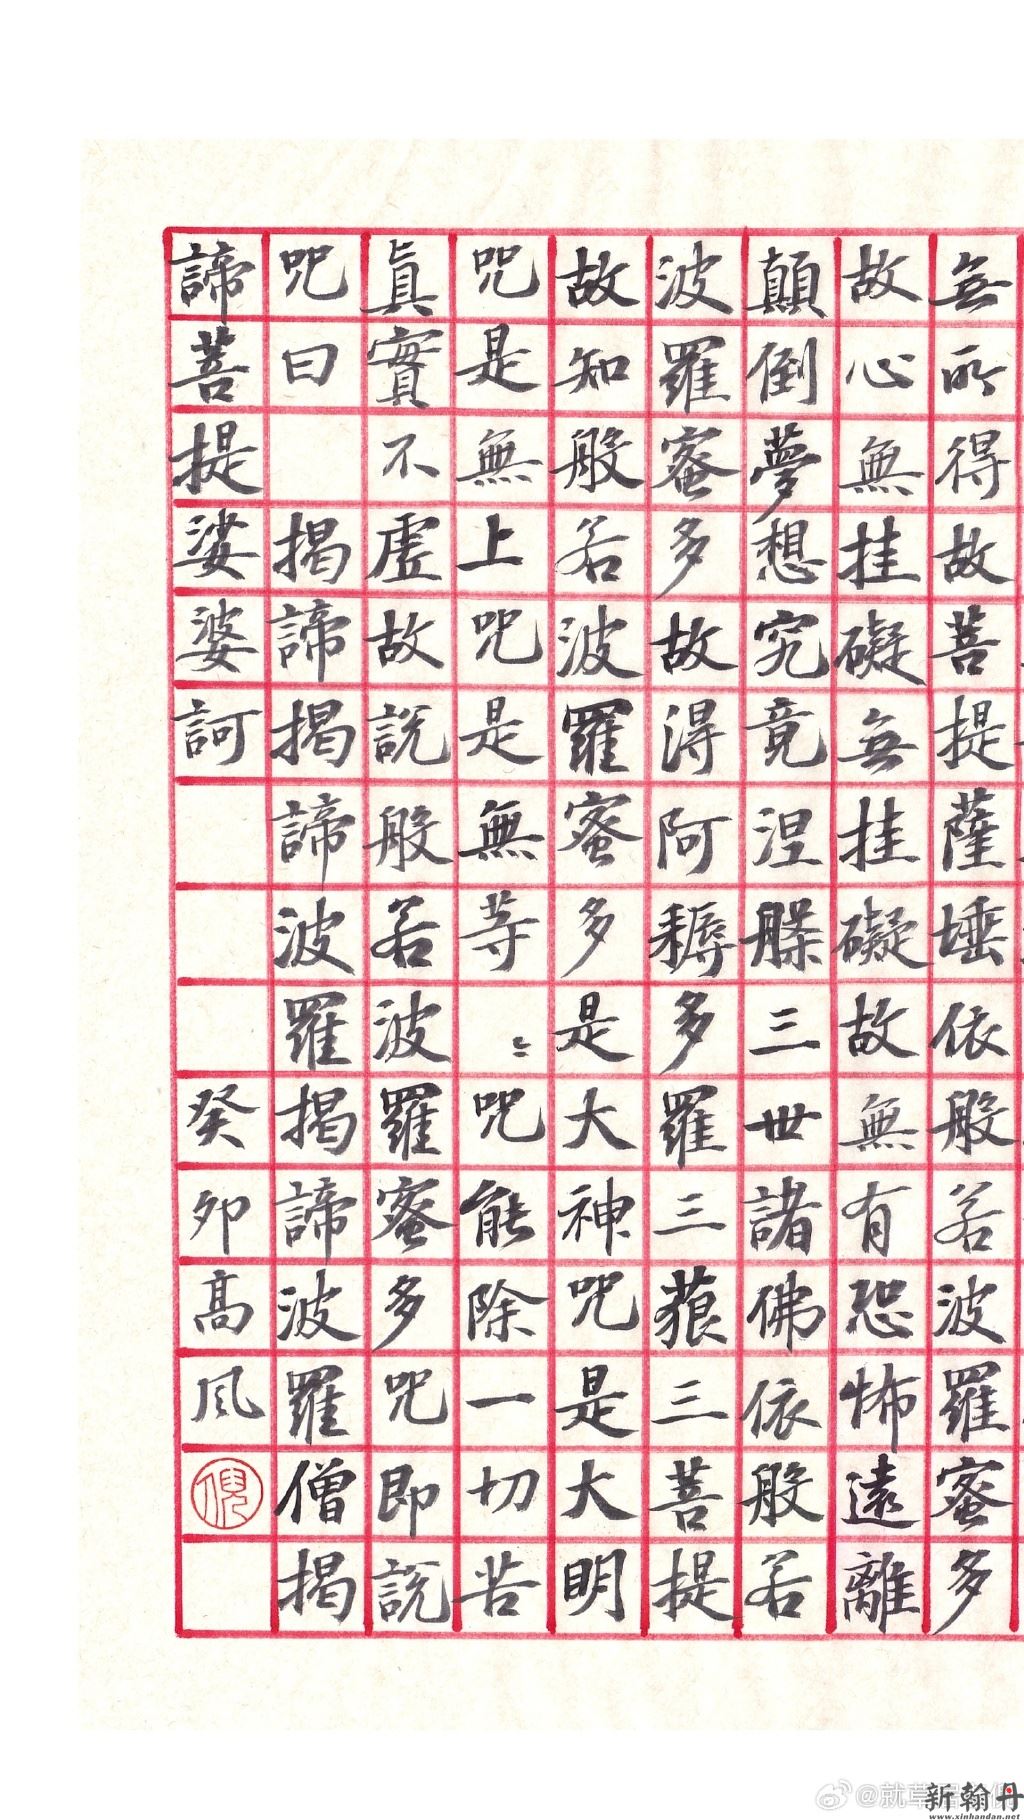 無所得故菩提薩埵依般若波羅蜜多
故心無挂礙無挂礙故無有恐怖遠離
顛倒夢想究竟涅槃三世諸佛依般若
波羅蜜多故得阿耨多羅三藐三菩提
故知般若波羅蜜多是大神咒是大明
咒是無上咒是無等⺀咒能除一切苦
真實不虛故說般若波羅蜜多咒即說
咒曰 揭諦揭諦波羅揭諦波羅僧揭
諦菩提娑婆訶 癸卯高風
倪
新翰丹
www.xinhandan.net